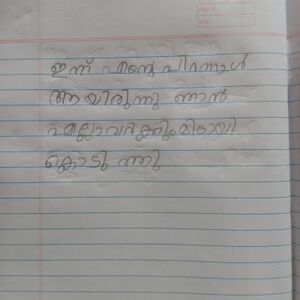 ഇന്ന് എന്റെ പിറന്നാൾ
ആയിരുന്നു ഞാൻ
എല്ലാവർക്കും മിഠായി
കൊടുത്തു